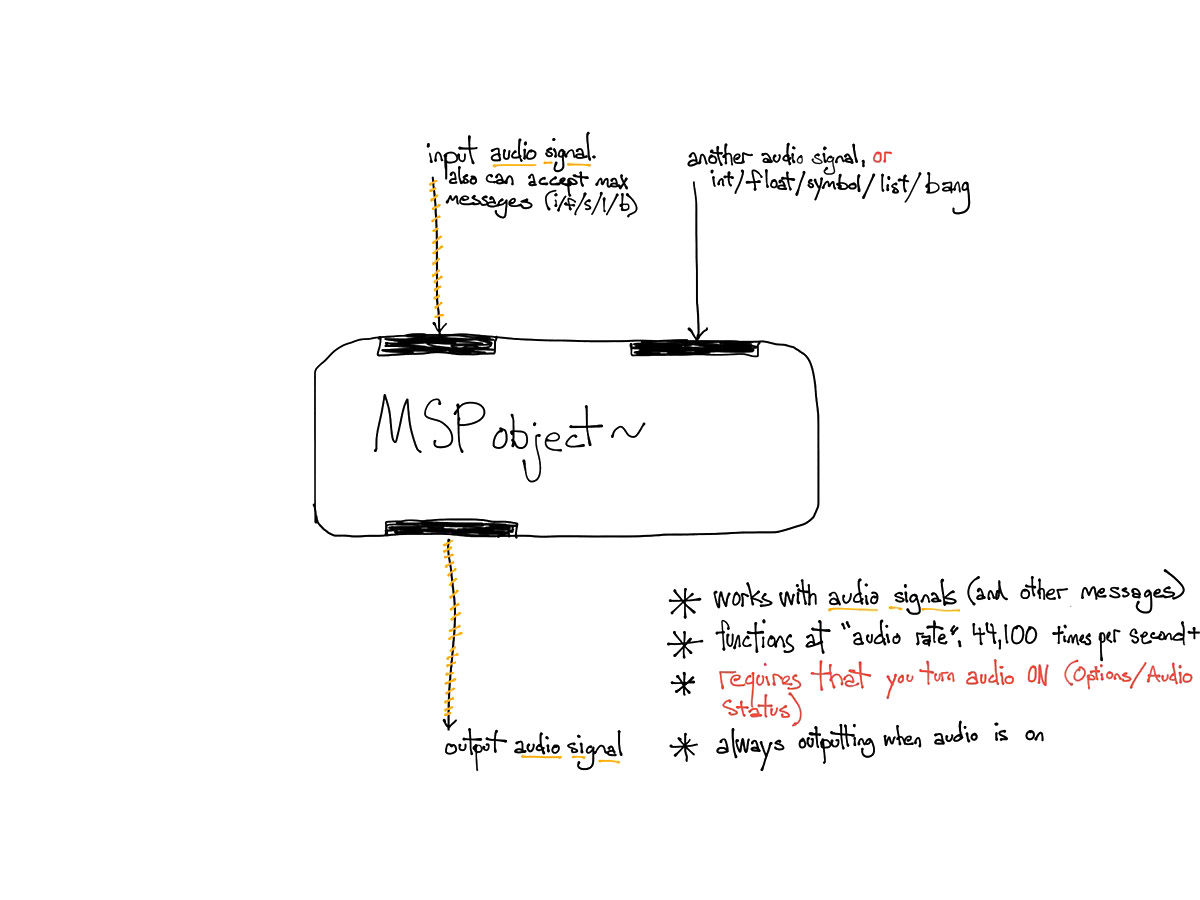 input audio signal.
also can accept max
messages (i/f/s/l/b)
another audio signal, or
int/float/symbol/list/bang
MSP object ~
output audio signal
* works with audio signals (and other messages)
* functions at "audio rate", 44,100 times per second+
* requires that you turn audio ON (Options/Audio
Status)
* always outputting when audio is on